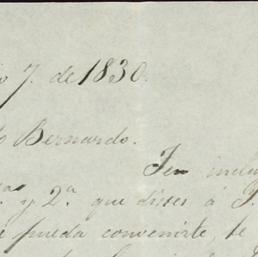 7. de 1830.
Bernardo.
Ten inclu
y 2ª. que distes á
pueda convenirte, te